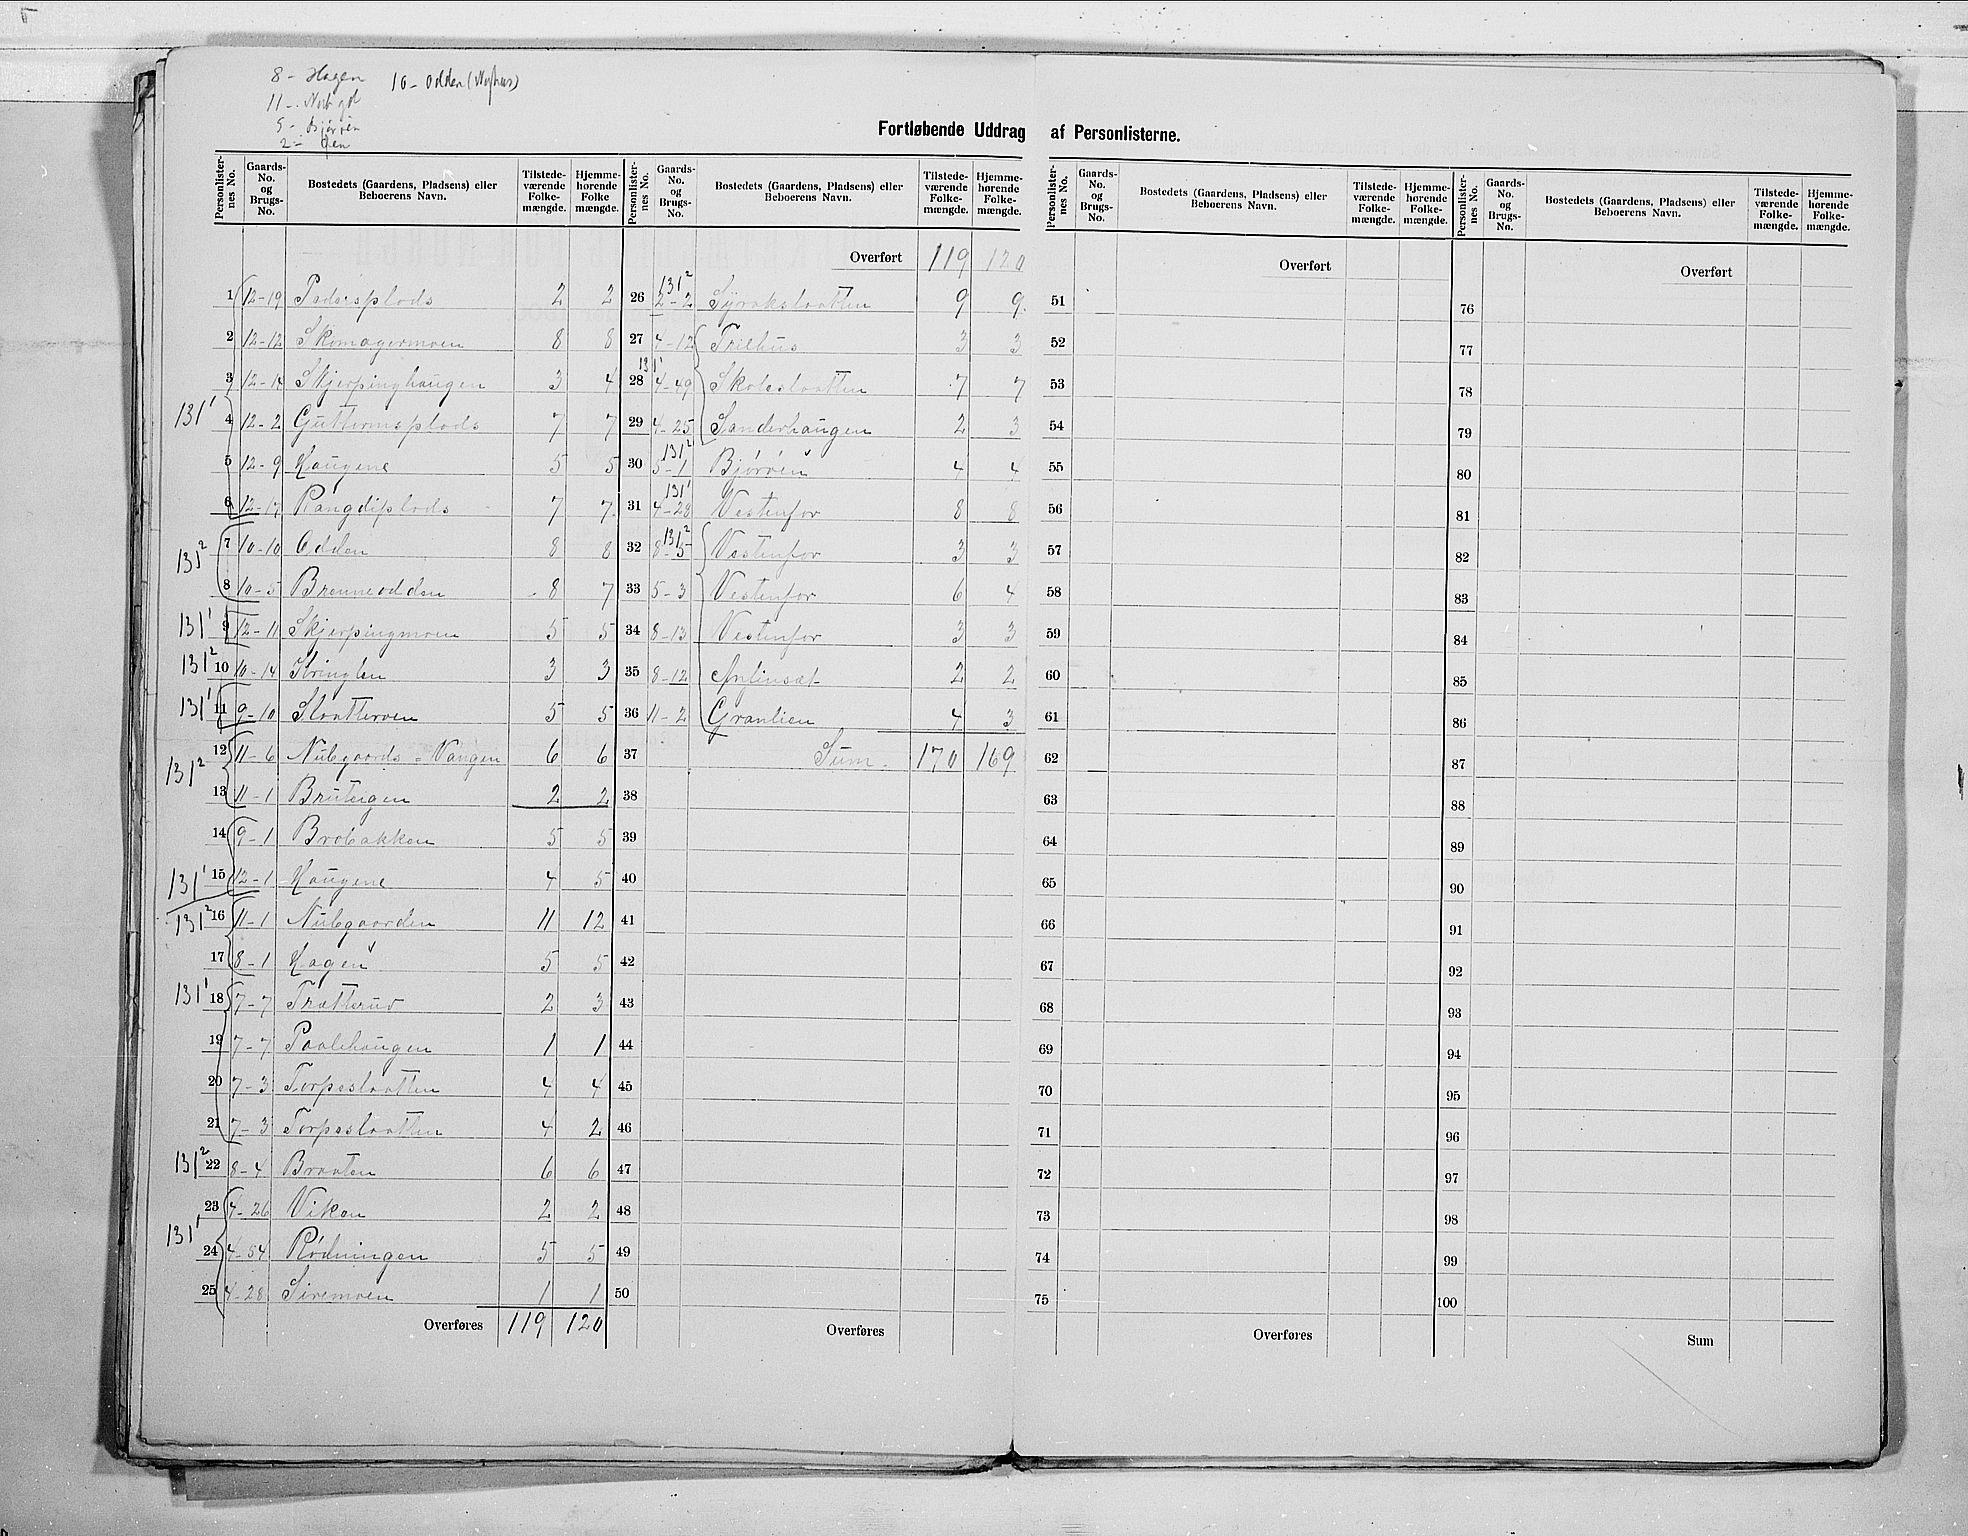 8 - Hagen 10 - Odden (Nyhus)
11 - Nub gd
5 - Bjørøen
2 - Øen
Fortløbende Uddrag af Personlisterne.
Personlisternes No. | Gaards-No. og Brugs-No. | Bostedets (Gaardens, Pladsens) eller Beboerens Navn. | Tilstedeværende Folkemængde. | Hjemmehørende Folkemængde.
1 12-19 Pedersplads 2 2
2 12-12 Skomagermoen 8 8
3 12-14 Skjerpinghaugen 3 4
131¹ 4 12-2 Guttormsplads 7 7
5 12-9 Haugene 5 5
6 12-17 Rangdiplads 7 7
131² 7 10-10 Odden 8 8
8 10-5 Brenneodden 8 7
131¹ 9 12-11 Skjerpingmoen 5 5
131² 10 10-14 Kringlen 3 3
131¹ 11 9-10 Slaatterøen 5 5
131² 12 11-6 Nubgaards-Vangen 6 6
13 11-1 Bruteigen 2 2
14 9-1 Brobakken 5 5
131¹ 15 12-1 Haugene 4 5
131² 16 11-1 Nubgaarden 11 12
17 8-1 Hagen 5 5
131¹ 18 7-7 Trætterud 2 3
19 7-7 Paalehaugen 1 1
20 7-3 Torpeslaatten 4 4
21 7-3 Torpeslaatten 4 2
131² 22 8-4 Braaten 6 6
23 4-26 Viken 2 2
131¹ 24 4-54 Rødningen 5 5
25 4-28 Siremoen 1 1
Overføres 119 120
Personlisternes No. | Gaards-No. og Brugs-No. | Bostedets (Gaardens, Pladsens) eller Beboerens Navn. | Tilstedeværende Folkemængde. | Hjemmehørende Folkemængde.
Overført 119 120
26 131² 2-2 Syrakslaatten 9 9
27 4-12 Friehus 3 3
28 131¹ 4-49 Skoleslaatten 7 7
29 4-25 Sanderhaugen 2 3
30 131² 5-1 Bjørøen 4 4
31 131¹ 4-23 Vestenfor 8 8
32 131² 8-5 Vestenfor 3 3
33 5-3 Vestenfor 6 4
34 8-13 Vestenfor 3 3
35 8-12 2 2
36 11-2 Granlien 4 3
37 Sum 170 169
38
39
40
41
42
43
44
45
46
47
48
49
50
Overføres
Personlisternes No. | Gaards-No. og Brugs-No. | Bostedets (Gaardens, Pladsens) eller Beboerens Navn. | Tilstedeværende Folkemængde. | Hjemmehørende Folkemængde.
Overført
51
52
53
54
55
56
57
58
59
60
61
62
63
64
65
66
67
68
69
70
71
72
73
74
75
Overføres
Personlisternes No. | Gaards-No. og Brugs-No. | Bostedets (Gaardens, Pladsens) eller Beboerens Navn. | Tilstedeværende Folkemængde. | Hjemmehørende Folkemængde.
Overført
76
77
78
79
80
81
82
83
84
85
86
87
88
89
90
91
92
93
94
95
96
97
98
99
100
Sum